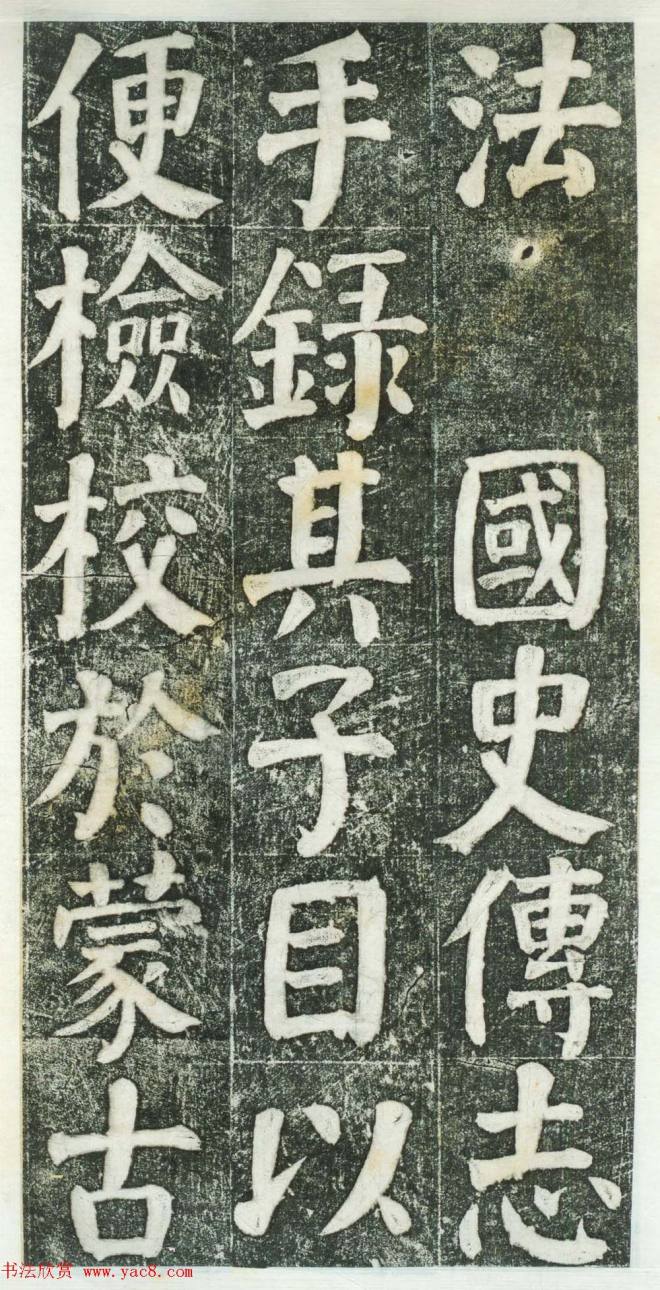 法 國史傳志
手錄其子目以
便檢校於蒙古
书法欣赏 www.yac8.com